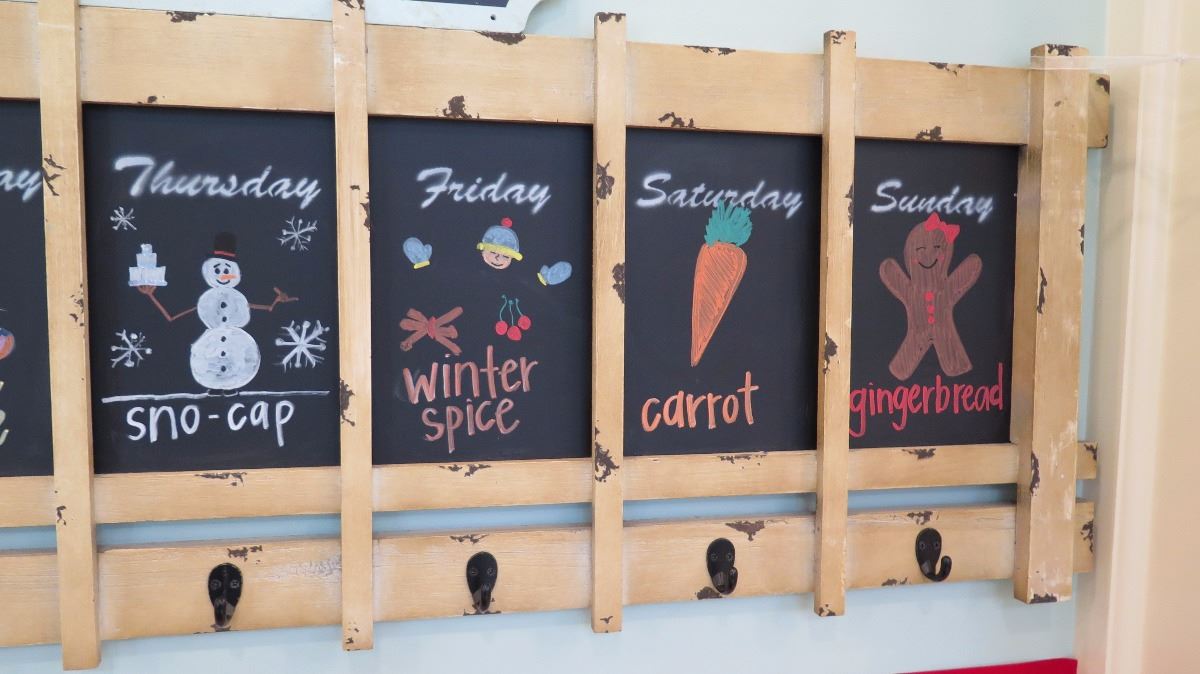 Thursday
sno-cap
Friday
winter
spice
Saturday
carrot
Sunday
gingerbread